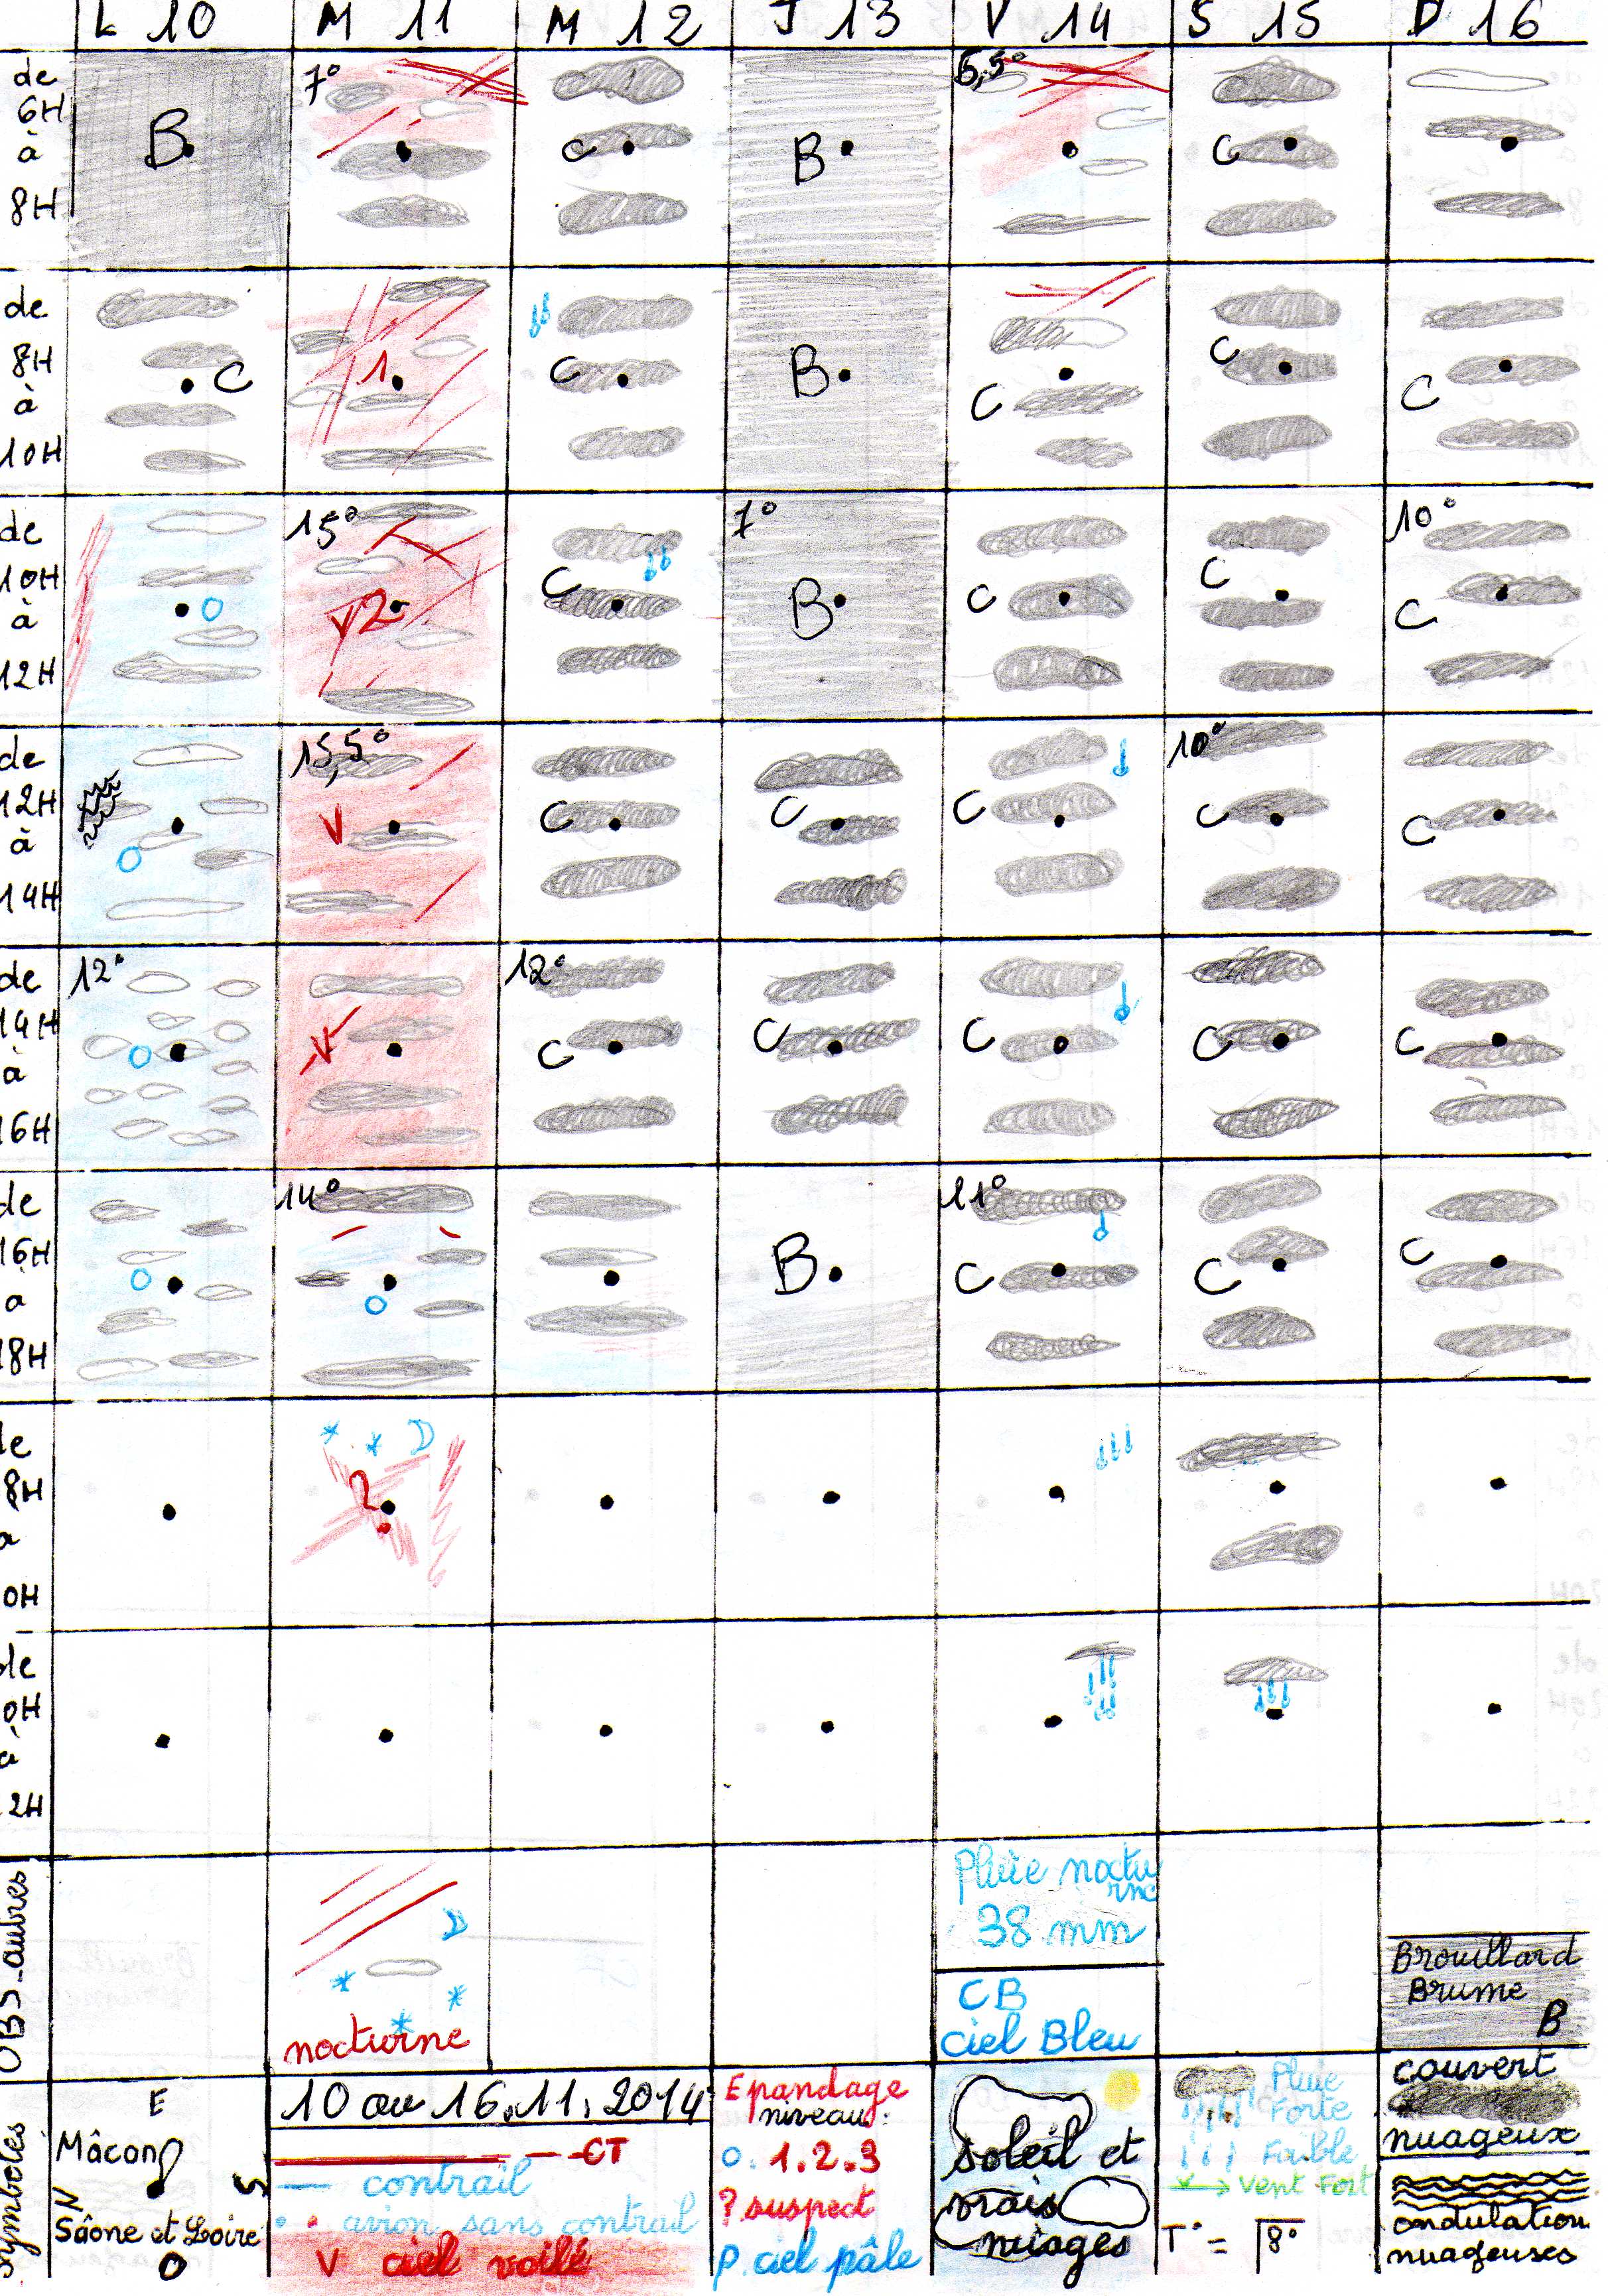 L 10 M 11 M 12 J 13 V 14 S 15 D 16
de 6H à 8H
B 7° C B 6,5° C
de 8H à 10H
C 1 C B C C C
de 10H à 12H
15° 7° 10°
O V2 C B C C C
de 12H à 14H
15,5° 10°
O V C C C C C
de 14H à 16H
12° 12°
O V C C C C C
de 16H à 18H
14° 11°
O O B C C C
de
8H
à
0H
?
de
0H
à
2H
OBS-autres
nocturne
Pluie noctu
rne
38 mm
CB
ciel Bleu
Brouillard
Brume
B
Symboles
E
Mâcon
S
N
Sâone et Loire
O
10 au 16.11.2014
CT
contrail
avion sans contrail
V ciel voilé
Epandage
niveau:
0.1.2.3
? suspect
p. ciel pâle
soleil et
vrais
nuages
Pluie
Forte
Faible
Vent Fort
T° = 8°
couvert
nuageux
ondulation
nuageuses